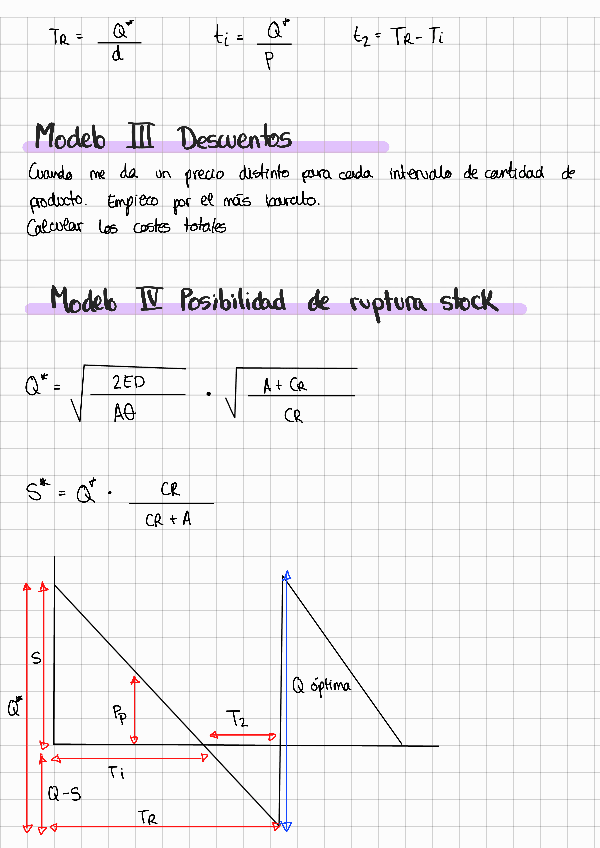 TR = Q* / d    ti = Q* / p    t2 = TR - Ti
Modelo III Descuentos
Cuando me da un precio distinto para cada intervalo de cantidad de
producto. Empiezo por el más barato.
Calcular los costes totales
Modelo IV Posibilidad de ruptura stock
Q* = √(2ED / Aθ) · √(A + CR / CR)
S* = Q* · CR / CR + A
S
Q óptima
Q*
Pp
T2
Ti
Q-S
TR